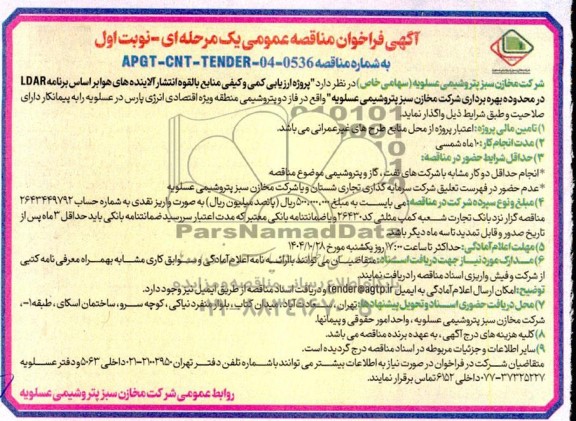 آگهی فراخوان مناقصه عمومی یک مرحله ای -نوبت اول
به شماره مناقصه APGT-CNT-TENDER-04-0536
شرکت مخازن سبز پتروشیمی عسلویه (سهامی خاص) در نظر دارد "پروژه ارزیابی کمی و کیفی منابع بالقوه انتشار آلاینده های هوا بر اساس برنامه LDAR
در محدوده بهره برداری شرکت مخازن سبز پتروشیمی عسلویه" واقع در فاز دو پتروشیمی منطقه ویژه اقتصادی انرژی پارس در عسلویه را به پیمانکار دارای
صلاحیت و طبق شرایط ذیل واگذار نماید.
۱) تامین مالی پروژه: اعتبار پروژه از محل منابع طرح های غیر عمرانی می باشد.
۲) مدت انجام کار: ۱۰ ماه شمسی
۳) حداقل شرایط حضور در مناقصه:
*انجام حداقل دو کار مشابه با شرکت های نفت، گاز و پتروشیمی موضوع مناقصه
*عدم حضور در فهرست تعلیق شرکت سرمایه گذاری تجاری شستان و یا شرکت مخازن سبز پتروشیمی عسلویه
۴) مبلغ و نوع سپرده شرکت در مناقصه: می بایست به مبلغ ۵۰۰،۰۰۰،۰۰۰ ریال (پانصد میلیون ریال) به صورت واریز نقدی به شماره حساب ۲۶۴۳۴۴۹۷۹۲
مناقصه گزار نزد بانک تجارت شعبه کمپ مثلثی کد ۲۶۴۳۰ و یا ضمانتنامه بانکی معتبر که مدت اعتبار سررسید ضمانتنامه بانکی باید حداقل ۳ ماه پس از
تاریخ صدور و قابل تمدید تا سه ماه دیگر باشد.
۵) مهلت اعلام آمادگی: حداکثر تا ساعت ۱۷:۰۰ روز یکشنبه مورخ ۱۴۰۴/۱۰/۲۸
۶) مدارک مورد نیاز جهت دریافت اسناد: متقاضیان می توانند با ارائه نامه اعلام آمادگی و سوابق کاری مشابه بهمراه معرفی نامه کتبی
از شرکت و فیش واریزی اسناد مناقصه را دریافت نمایند.
توضیح: امکان ارسال اعلام آمادگی به ایمیل tender@agtp.ir و دریافت اسناد مناقصه از طریق ایمیل نیز وجود دارد.
۷) محل دریافت حضوری اسناد و تحویل پیشنهادها: تهران، سعادت آباد، میدان کتاب، بلوار منفرد نیاکی، کوچه سرو، ساختمان اسکای، طبقه ۱-،
شرکت مخازن سبز پتروشیمی عسلویه، واحد امور حقوقی و پیمانها.
۸) کلیه هزینه های درج آگهی، به عهده برنده مناقصه می باشد.
۹) سایر اطلاعات و جزئیات مربوطه در اسناد مناقصه درج گردیده است.
متقاضیان شرکت در فراخوان در صورت نیاز به اطلاعات بیشتر می توانند با شماره تلفن دفتر تهران ۰۲۱-۲۱۰۰۲۹۵۰ داخلی ۵۰۶۳ و دفتر عسلویه
۰۷۷-۳۷۳۲۵۲۲۷ داخلی ۶۱۵۲ تماس برقرار نمایند.
روابط عمومی شرکت مخازن سبز پتروشیمی عسلویه
ParsNamadData